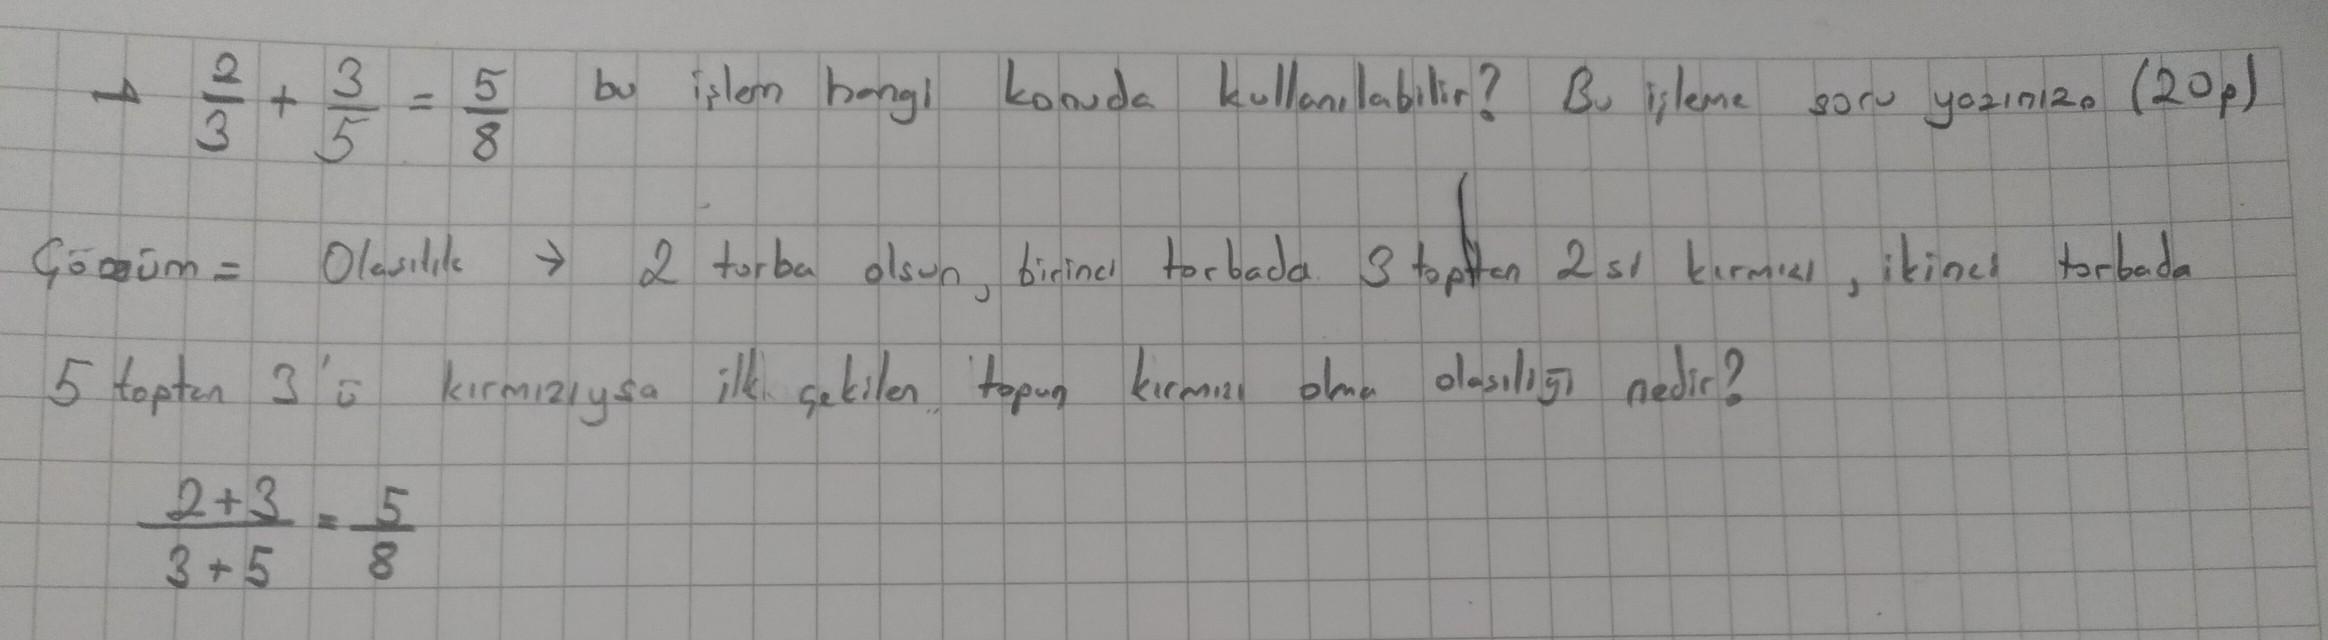 → 2/3 + 3/5 = 5/8 bu işlem hangi konuda kullanılabilir? Bu işleme soru yazınız. (20p)
Çözüm = Olasılık → 2 torba olsun, birinci torbada 3 toptan 2 si kırmızı, ikinci torbada
5 toptan 3'ü kırmızıysa ilk çekilen topun kırmızı olma olasılığı nedir?
2+3/3+5 = 5/8